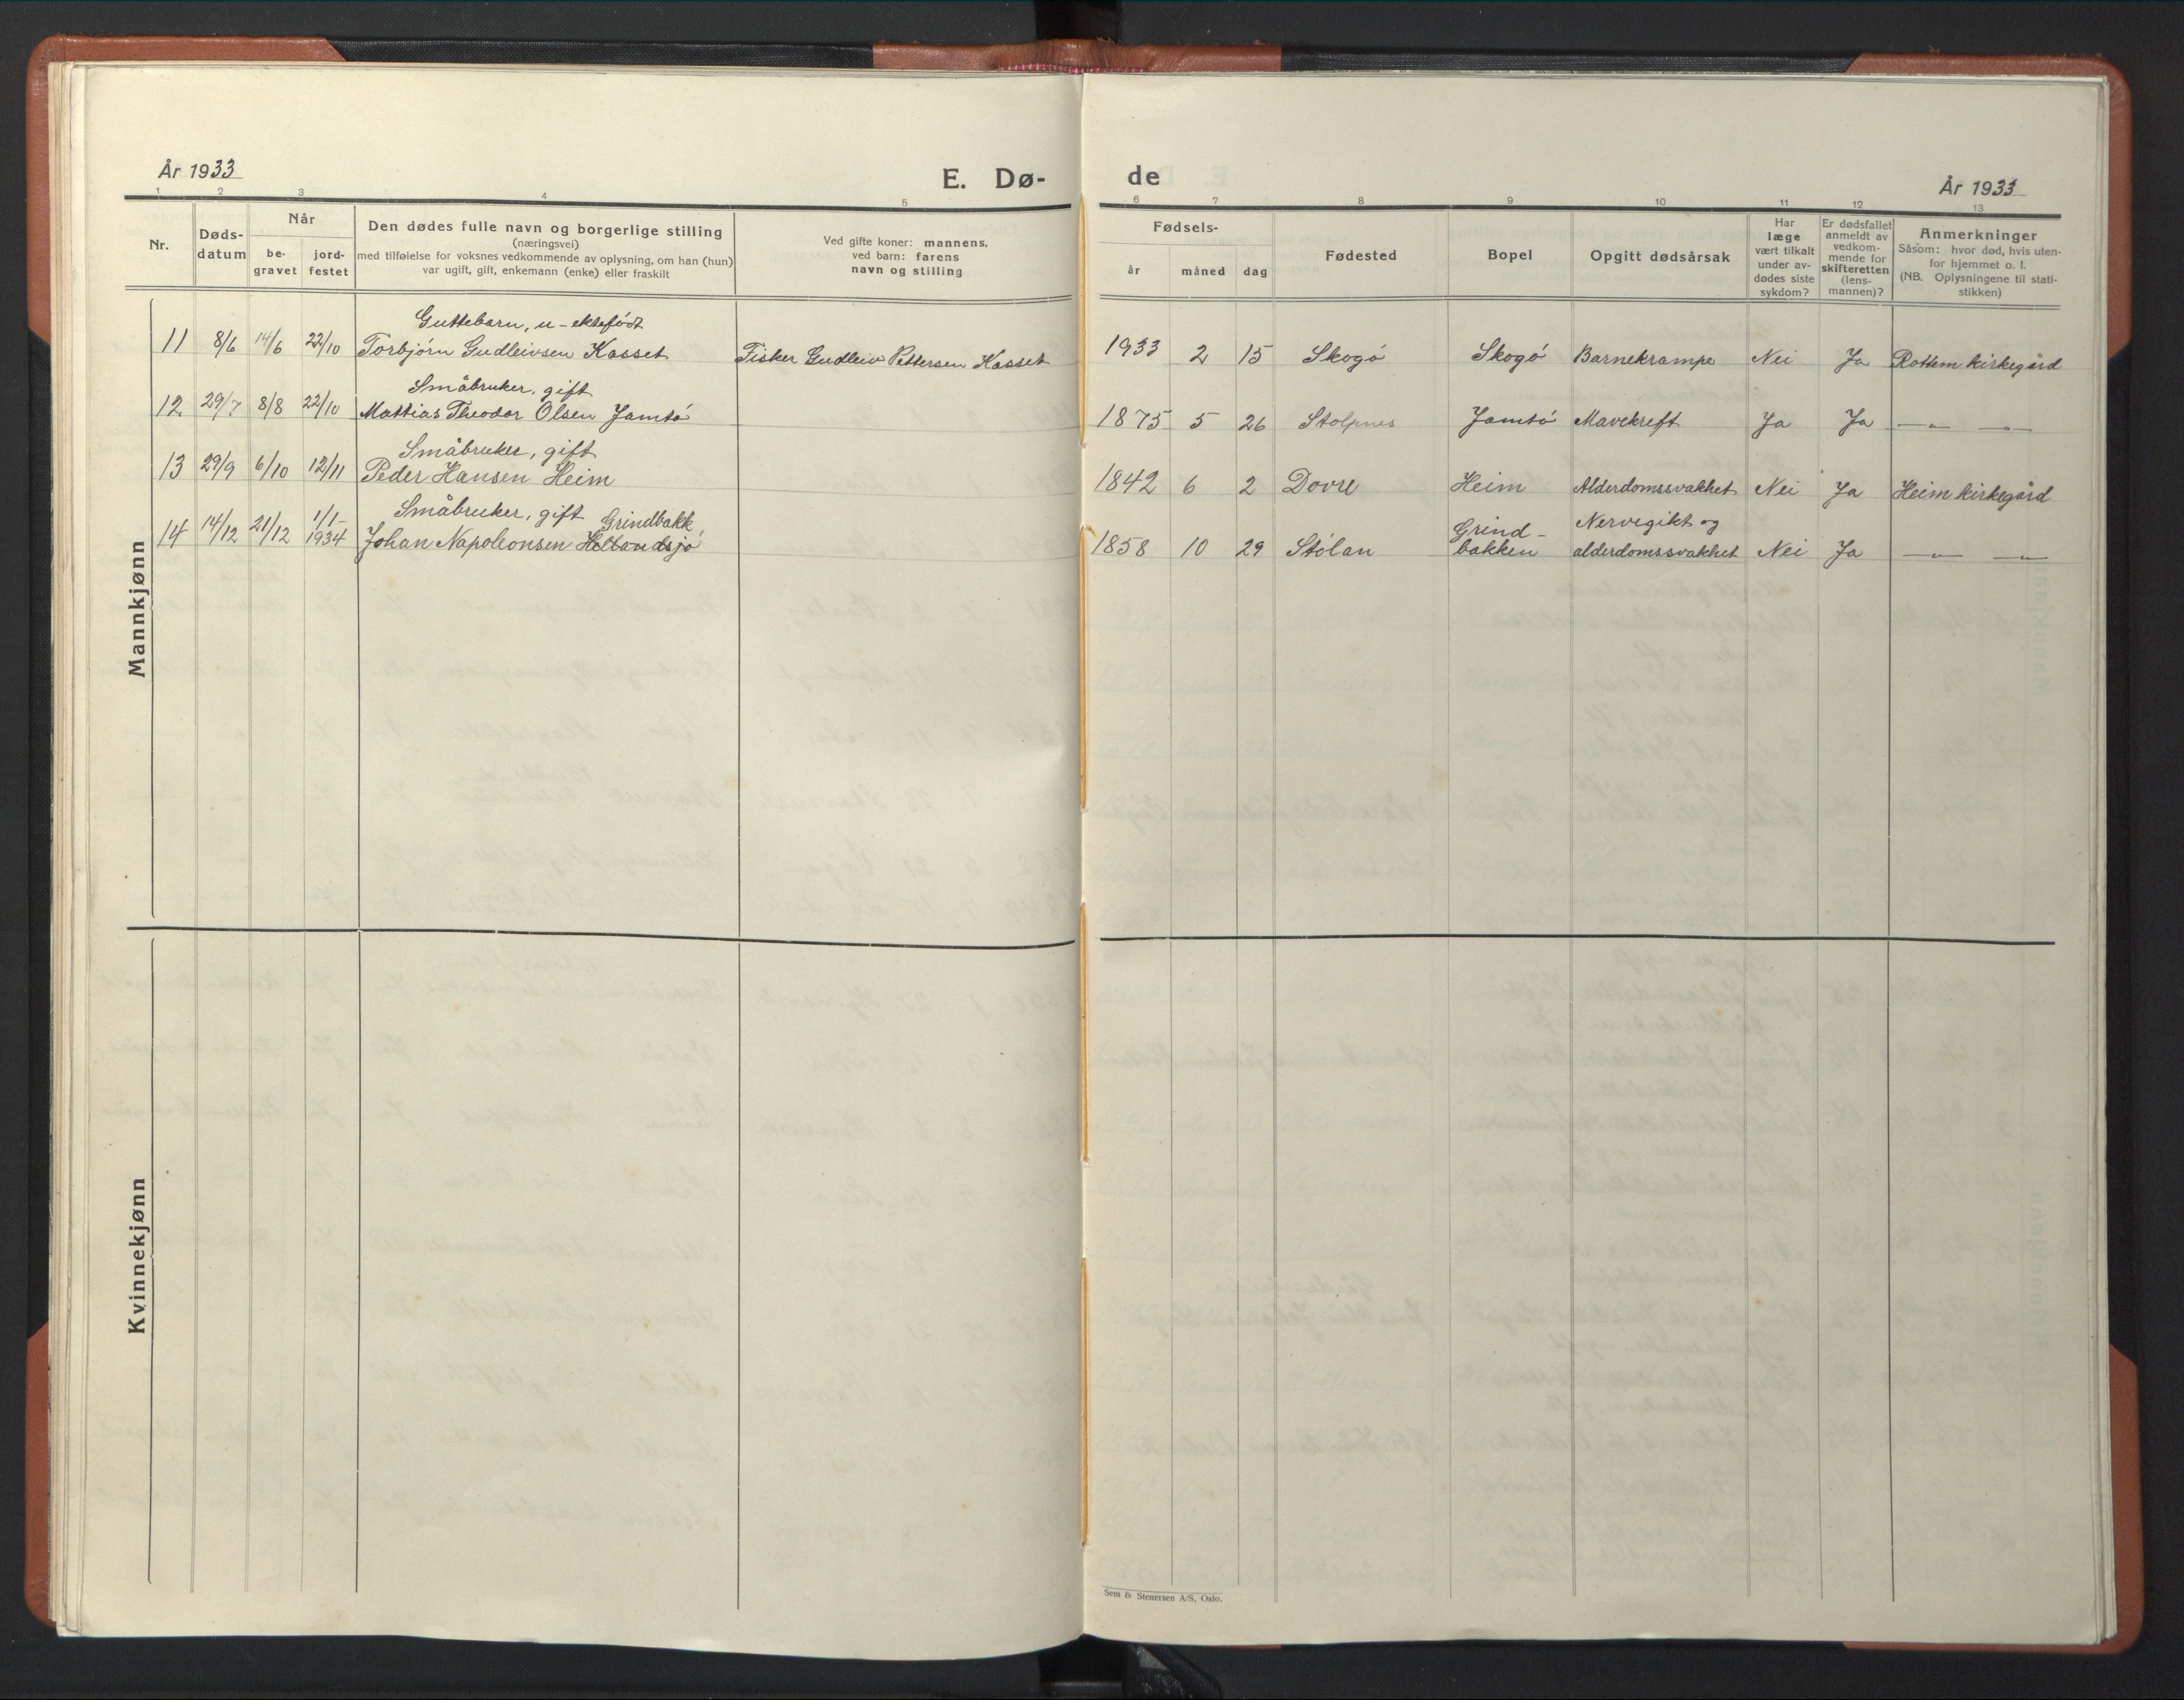 År 1933
E. Dø-
1 2 3 4 5
Nr.
Døds-
datum
Når
be-
gravet
jord-
festet
Den dødes fulle navn og borgerlige stilling
(næringsvei)
med tilføielse for voksnes vedkommende av oplysning, om han (hun)
var ugift, gift, enkemann (enke) eller fraskilt
Ved gifte koner: mannens,
ved barn: farens
navn og stilling
Mannkjønn
Guttebarn, u-ektefödt
11 8/6 14/6 22/10 Torbjörn Gudleivsen Kasset Fisker Gudleiv Pettersen Kasset
Småbruker, gift
12 29/7 8/8 22/10 Mattias Theodor Olsen Jamtö
Småbruker, gift
13 29/9 6/10 12/11 Peder Hansen Heim
Småbruker, gift Grindbakk
14 14/12 21/12 1/1-1934 Johan Napoleonsen Hollandsjö
Kvinnekjønn
de
År 1933
6 7 8 9 10 11 12 13
Fødsels-
år måned dag
Fødested
Bopel
Opgitt dødsårsak
Har
læge
vært tilkalt
under av-
dødes siste
sykdom?
Er dødsfallet
anmeldt av
vedkom-
mende for
skifteretten
(lens-
mannen)?
Anmerkninger
Såsom: hvor død, hvis uten-
for hjemmet o. l.
(NB. Oplysningene til stati-
stikken)
1933 2 15 Skogö Skogö Barnekrampe Nei Ja Rottem kirkegård
1875 5 26 Stolpnes Jamtö Mavekreft Ja Ja —„— —„—
1842 6 2 Dovre Heim Alderdomssvakhet Nei Ja Heim kirkegård
Grind- Nervegikt og
1858 10 29 Stölan bakken alderdomssvakhet Nei Ja —„— —„—
Sem & Stenersen A/S, Oslo.